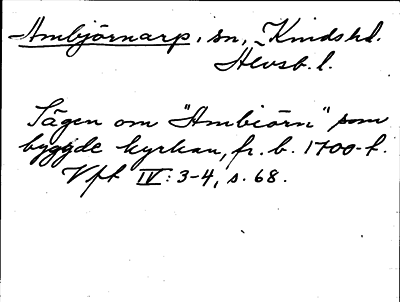 Ambjörnarp, sn, Kinds hd.
Älvsb. l.
Sägen om "Ambiörn" som
byggde kyrkan, fr. b. 1700-t.
Vft IV: 3-4, s. 68.